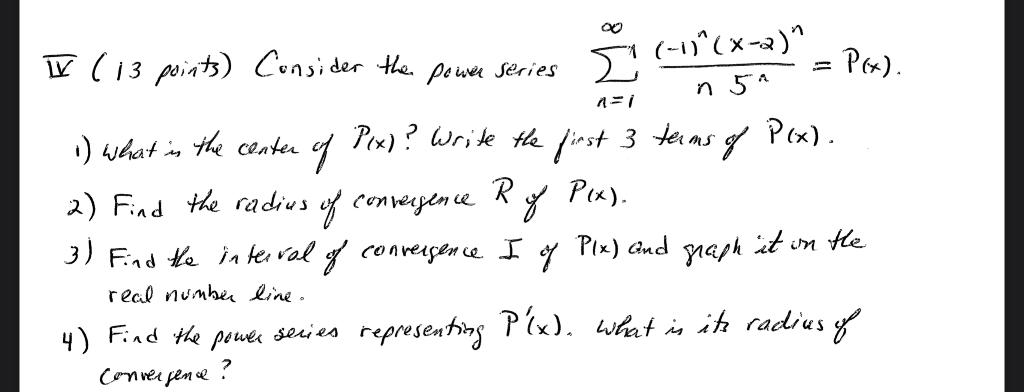 IV (13 points) Consider the power series ∞∑n=1 (-1)^n (x-2)^n / n 5^n = P(x).
1) What is the center of P(x)? Write the first 3 terms of P(x).
2) Find the radius of convergence R of P(x).
3) Find the interval of convergence I of P(x) and graph it on the
real number line.
4) Find the power series representing P'(x). What is its radius of
convergence?